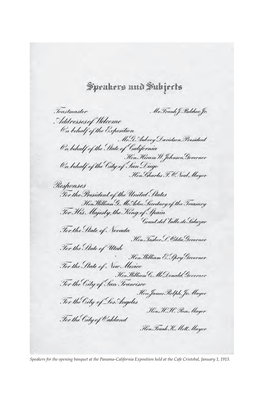 Speakers and Subjects
Toastmaster Mr. Frank J. Belcher Jr.
Addresses of Welcome
On behalf of the Exposition
Mr. G. Aubrey Davidson, President
On behalf of the State of California
Hon. Hiram W. Johnson, Governor
On behalf of the City of San Diego
Hon. Charles F. O'Neal, Mayor
Responses
For the President of the United States
Hon. William G. McAdoo, Secretary of the Treasury
For His Majesty, the King of Spain
Conde del Valle de Salazar
For the State of Nevada
Hon. Tasker L. Oddie, Governor
For the State of Utah
Hon. William Spry, Governor
For the State of New Mexico
Hon. William C. McDonald, Governor
For the City of San Francisco
Hon. James Rolph, Jr., Mayor
For the City of Los Angeles
Hon. H. H. Rose, Mayor
For the City of Oakland
Hon. Frank K. Mott, Mayor
Speakers for the opening banquet at the Panama-California Exposition held at the Cafe Cristobal, January 1, 1915.